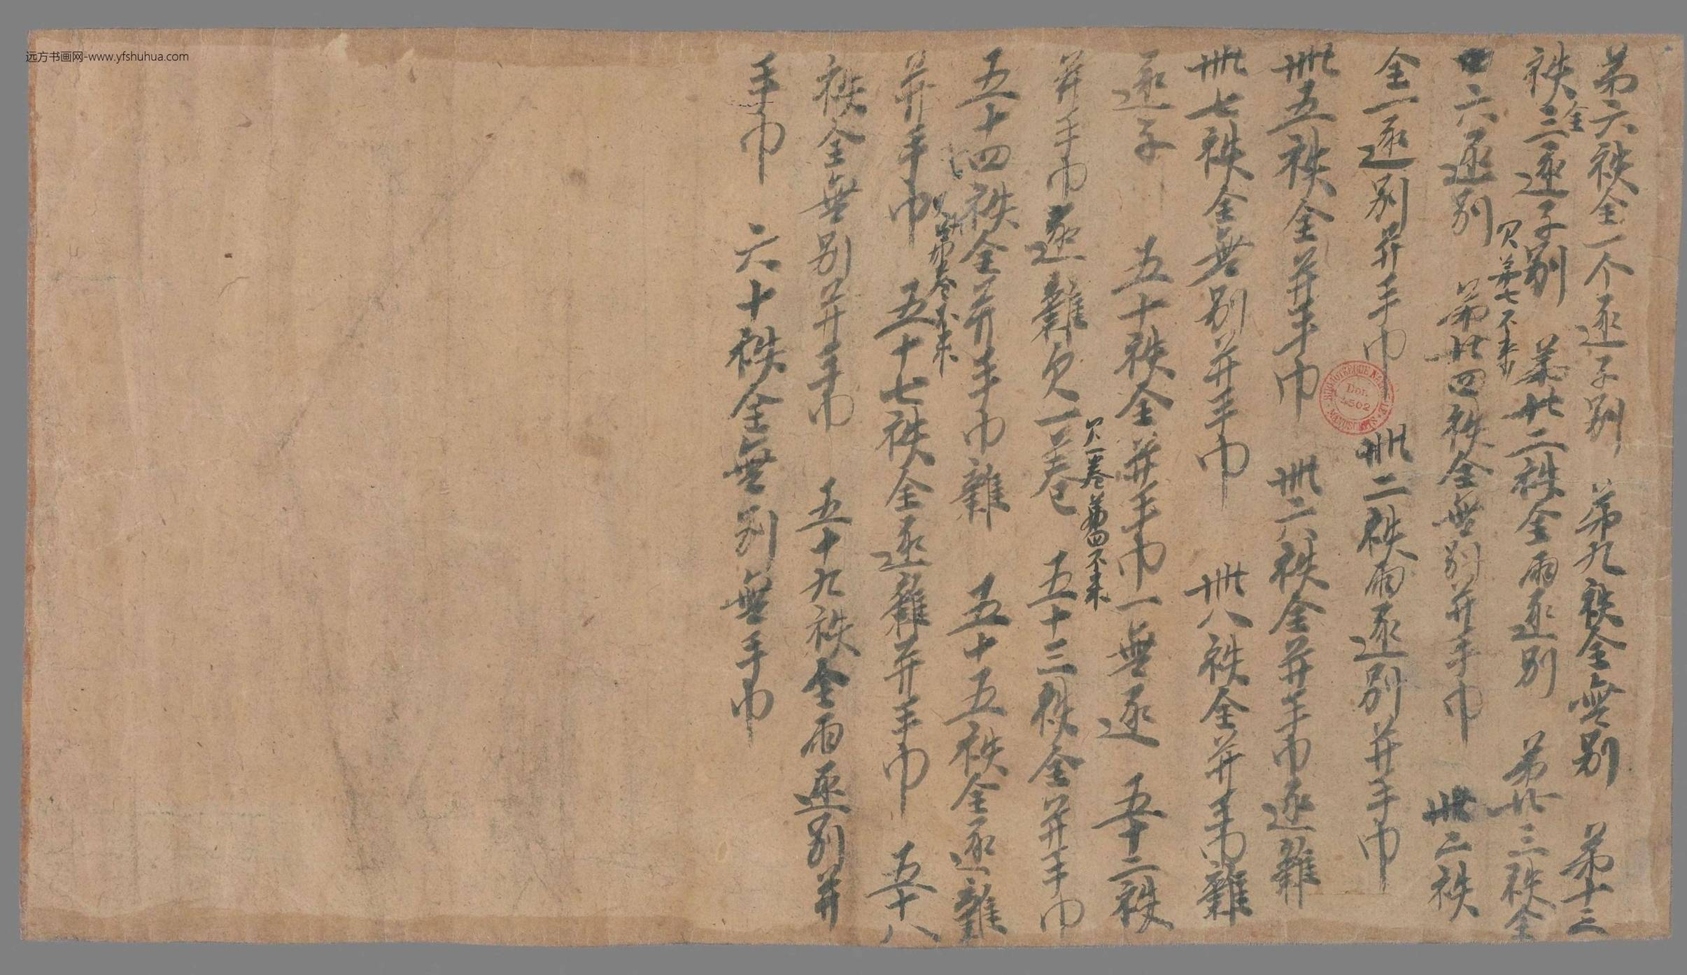 第六袟全一个逐子别 第九袟全無别 第十三
袟全三逐子别 欠第七不来 第廿二袟全兩逐别 第廿三袟全
六逐别 第卌四袟全無别并手巾 卌二袟
全一逐别并手巾 卌二袟兩逐别并手巾
卌五袟全并手巾 卌六袟全并手巾逐雜
卌七袟全無别并手巾 卌八袟全并手巾雜
逐子 五十袟全并手巾一無逐 五十二袟
并手巾逐雜欠一卷 欠一卷第四不来 五十三袟全并手巾
五十四袟全并手巾雜 五十五袟全逐雜
并手巾 卷不来 五十七袟全逐雜并手巾 五十八
袟全無别并手巾 五十九袟全兩逐别并
手巾 六十袟全無别無手巾
远方书画网-www.yfshuhua.com
Don
4502
MANUSCRITS